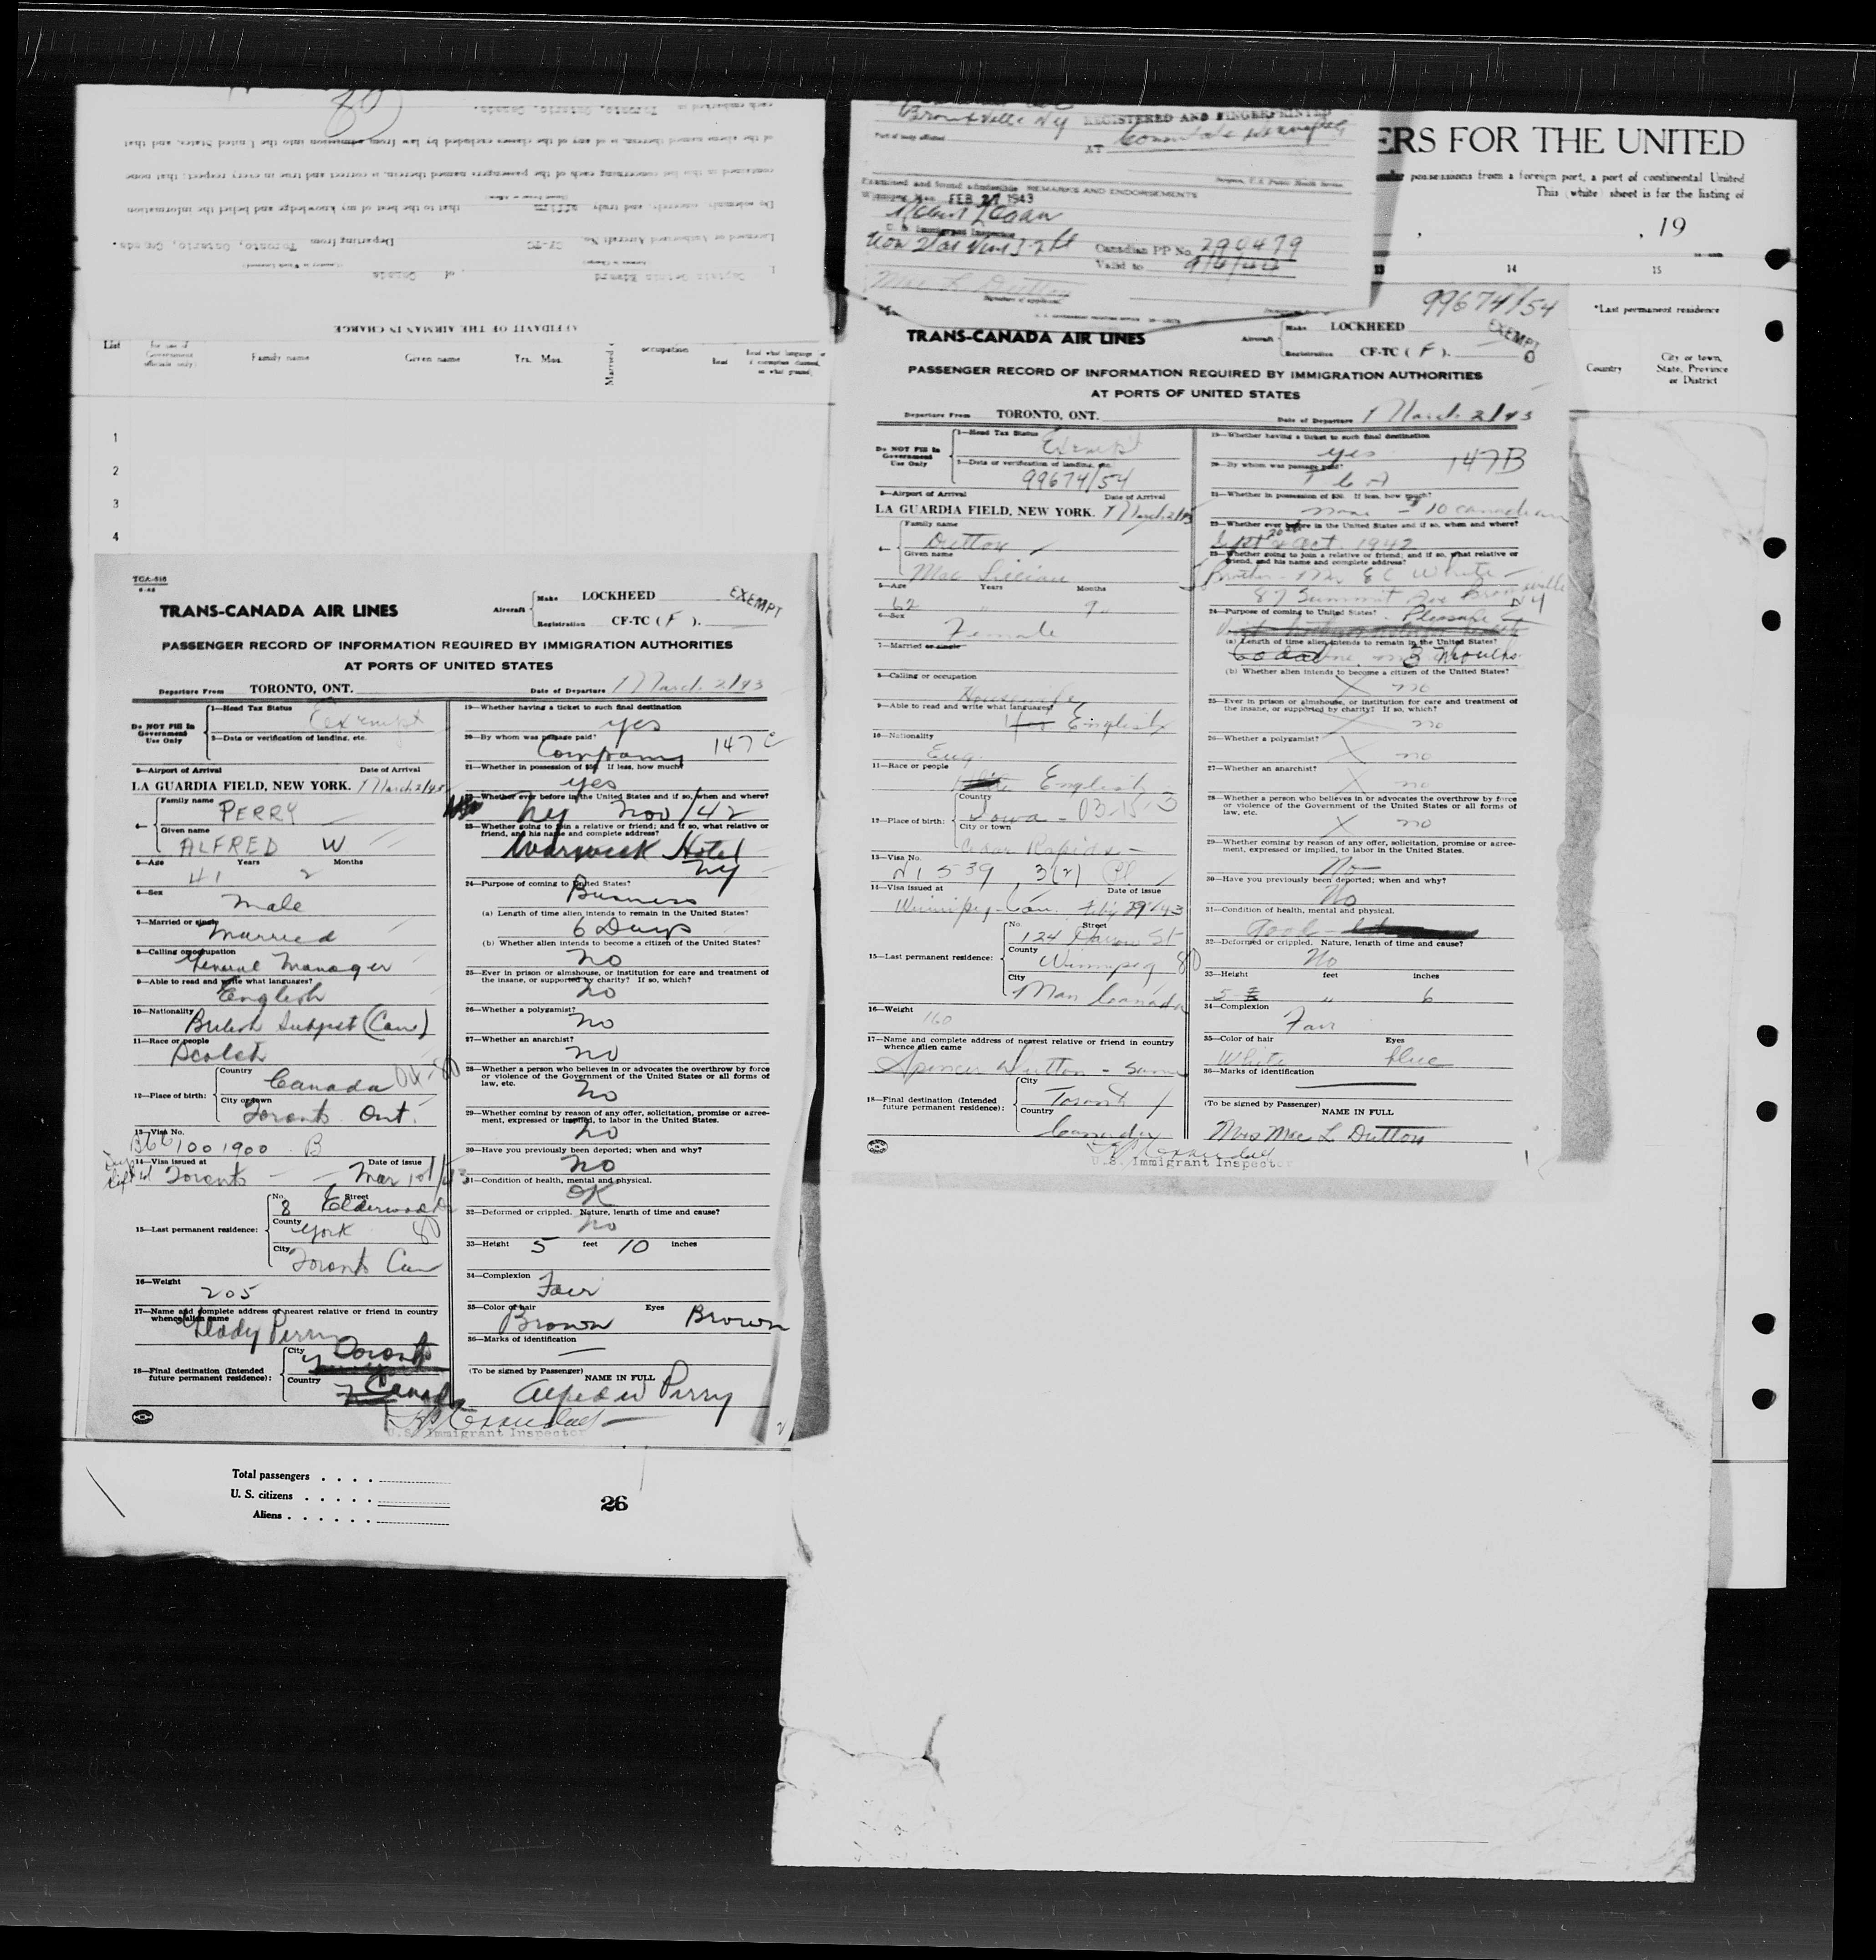 each embarked at Toronto, Ontario, Canada.
of the aliens named therein is of any of the classes excluded by law from admission into the United States, and that
contained in this list concerning each of the passengers named therein is correct and true in every respect; that none
Do solemnly, sincerely, and truly affirm that to the best of my knowledge and belief the information
Licensed or Authorized Aircraft No. CF-TC Departing from Toronto, Ontario, Canada.
of Canada
AFFIDAVIT OF THE AIRMAN IN CHARGE
List
Government officials only)
Family name
Given name
Yrs. Mos.
Married
occupation
Read
1
2
3
4
TCA-518
TRANS-CANADA AIR LINES
Aircraft Make LOCKHEED
Registration CF-TC ( F ).
EXEMPT
PASSENGER RECORD OF INFORMATION REQUIRED BY IMMIGRATION AUTHORITIES
AT PORTS OF UNITED STATES
Departure From TORONTO, ONT.
Date of Departure March 2/43
Do NOT Fill in Government Use Only
1—Head Tax Status Exempt
2—Data or verification of landing, etc.
3—Airport of Arrival Date of Arrival
LA GUARDIA FIELD, NEW YORK. March 2/43
4— Family name PERRY
Given name ALFRED W
5—Age Years Months
41 2
6—Sex
Male
7—Married or single
Married
8—Calling or occupation
General Manager
9—Able to read and write what languages?
English
10—Nationality
British Subject (Can)
11—Race or people
Scotch
12—Place of birth: Country Canada
City or town Toronto Ont.
13—Visa No.
1001900 B
14—Visa issued at Date of issue
Toronto Mar 1st/43
15—Last permanent residence: No. 8 Street Elderwood Dr
County York 80
City Toronto Can
16—Weight
205
17—Name and complete address of nearest relative or friend in country whence alien came
Glady Perry
18—Final destination (Intended future permanent residence): City Toronto
Country Canada
19—Whether having a ticket to such final destination
yes
20—By whom was passage paid?
Company 147 C
21—Whether in possession of $50. If less, how much?
yes
22—Whether ever before in the United States and if so, when and where?
NY Nov/42
23—Whether going to join a relative or friend; and if so, what relative or friend, and his name and complete address?
Warwick Hotel
NY
24—Purpose of coming to United States?
Business
(a) Length of time alien intends to remain in the United States?
6 Days
(b) Whether alien intends to become a citizen of the United States?
No
25—Ever in prison or almshouse, or institution for care and treatment of the insane, or supported by charity? If so, which?
No
26—Whether a polygamist?
no
27—Whether an anarchist?
no
28—Whether a person who believes in or advocates the overthrow by force or violence of the Government of the United States or all forms of law, etc.
No
29—Whether coming by reason of any offer, solicitation, promise or agreement, expressed or implied, to labor in the United States.
No
30—Have you previously been deported; when and why?
no
31—Condition of health, mental and physical.
OK
32—Deformed or crippled. Nature, length of time and cause?
no
33—Height 5 feet 10 inches
34—Complexion
Fair
35—Color of hair Eyes
Brown Brown
36—Marks of identification
—
(To be signed by Passenger) NAME IN FULL
Alfred W Perry
U.S. Immigrant Inspector
Total passengers . . . .
U. S. citizens . . . . .
Aliens . . . . . .
26
Bronxville NY
REGISTERED AND FINGERPRINTED
AT Consulate Winnipeg
Surgeon, U.S. Public Health Service.
Examined and found admissible REMARKS AND ENDORSEMENTS
FEB 27 1943
U. S. Immigrant Inspector
Canadian PP No. 290479
Valid to
Mae L Dutton
Signature of applicant
ERS FOR THE UNITED
possessions from a foreign port, a port of continental United
This (white) sheet is for the listing of
, 19
13
14
15
*Last permanent residence
Country
City or town, State, Province or District
99674/54
TRANS-CANADA AIR LINES
Aircraft Make LOCKHEED
Registration CF-TC ( F ).
EXEMPT
PASSENGER RECORD OF INFORMATION REQUIRED BY IMMIGRATION AUTHORITIES
AT PORTS OF UNITED STATES
Departure From TORONTO, ONT.
Date of Departure March 2/43
Do NOT Fill in Government Use Only
1—Head Tax Status Exempt
2—Data or verification of landing, etc.
99674/54
3—Airport of Arrival Date of Arrival
LA GUARDIA FIELD, NEW YORK. March 2/43
4— Family name
Dutton
Given name
Mae Lillian
5—Age Years Months
62 9
6—Sex
Female
7—Married or single
8—Calling or occupation
Housewife
9—Able to read and write what languages?
English
10—Nationality
Eng.
11—Race or people
English
12—Place of birth: Country Iowa
City or town Cedar Rapids
13—Visa No.
N1 539 3(2)
14—Visa issued at Date of issue
Winnipeg Can.
15—Last permanent residence: No. 124 Street
County Winnipeg 80
City Man Canada
16—Weight
160
17—Name and complete address of nearest relative or friend in country whence alien came
Spencer Dutton
18—Final destination (Intended future permanent residence): City Toronto
Country Canada
19—Whether having a ticket to such final destination
yes
147B
20—By whom was passage paid?
21—Whether in possession of $50. If less, how much?
none - 10 canadian
22—Whether ever before in the United States and if so, when and where?
Oct 1942
23—Whether going to join a relative or friend; and if so, what relative or friend, and his name and complete address?
Brother - E C White
87 Summit Ave Bronxville NY
24—Purpose of coming to United States?
Pleasure
(a) Length of time alien intends to remain in the United States?
3 months
(b) Whether alien intends to become a citizen of the United States?
no
25—Ever in prison or almshouse, or institution for care and treatment of the insane, or supported by charity? If so, which?
no
26—Whether a polygamist?
no
27—Whether an anarchist?
no
28—Whether a person who believes in or advocates the overthrow by force or violence of the Government of the United States or all forms of law, etc.
no
29—Whether coming by reason of any offer, solicitation, promise or agreement, expressed or implied, to labor in the United States.
No
30—Have you previously been deported; when and why?
No
31—Condition of health, mental and physical.
Good
32—Deformed or crippled. Nature, length of time and cause?
No
33—Height feet inches
5 6
34—Complexion
Fair
35—Color of hair Eyes
White blue
36—Marks of identification
(To be signed by Passenger)
NAME IN FULL
Mrs Mae L Dutton
U.S. Immigrant Inspector